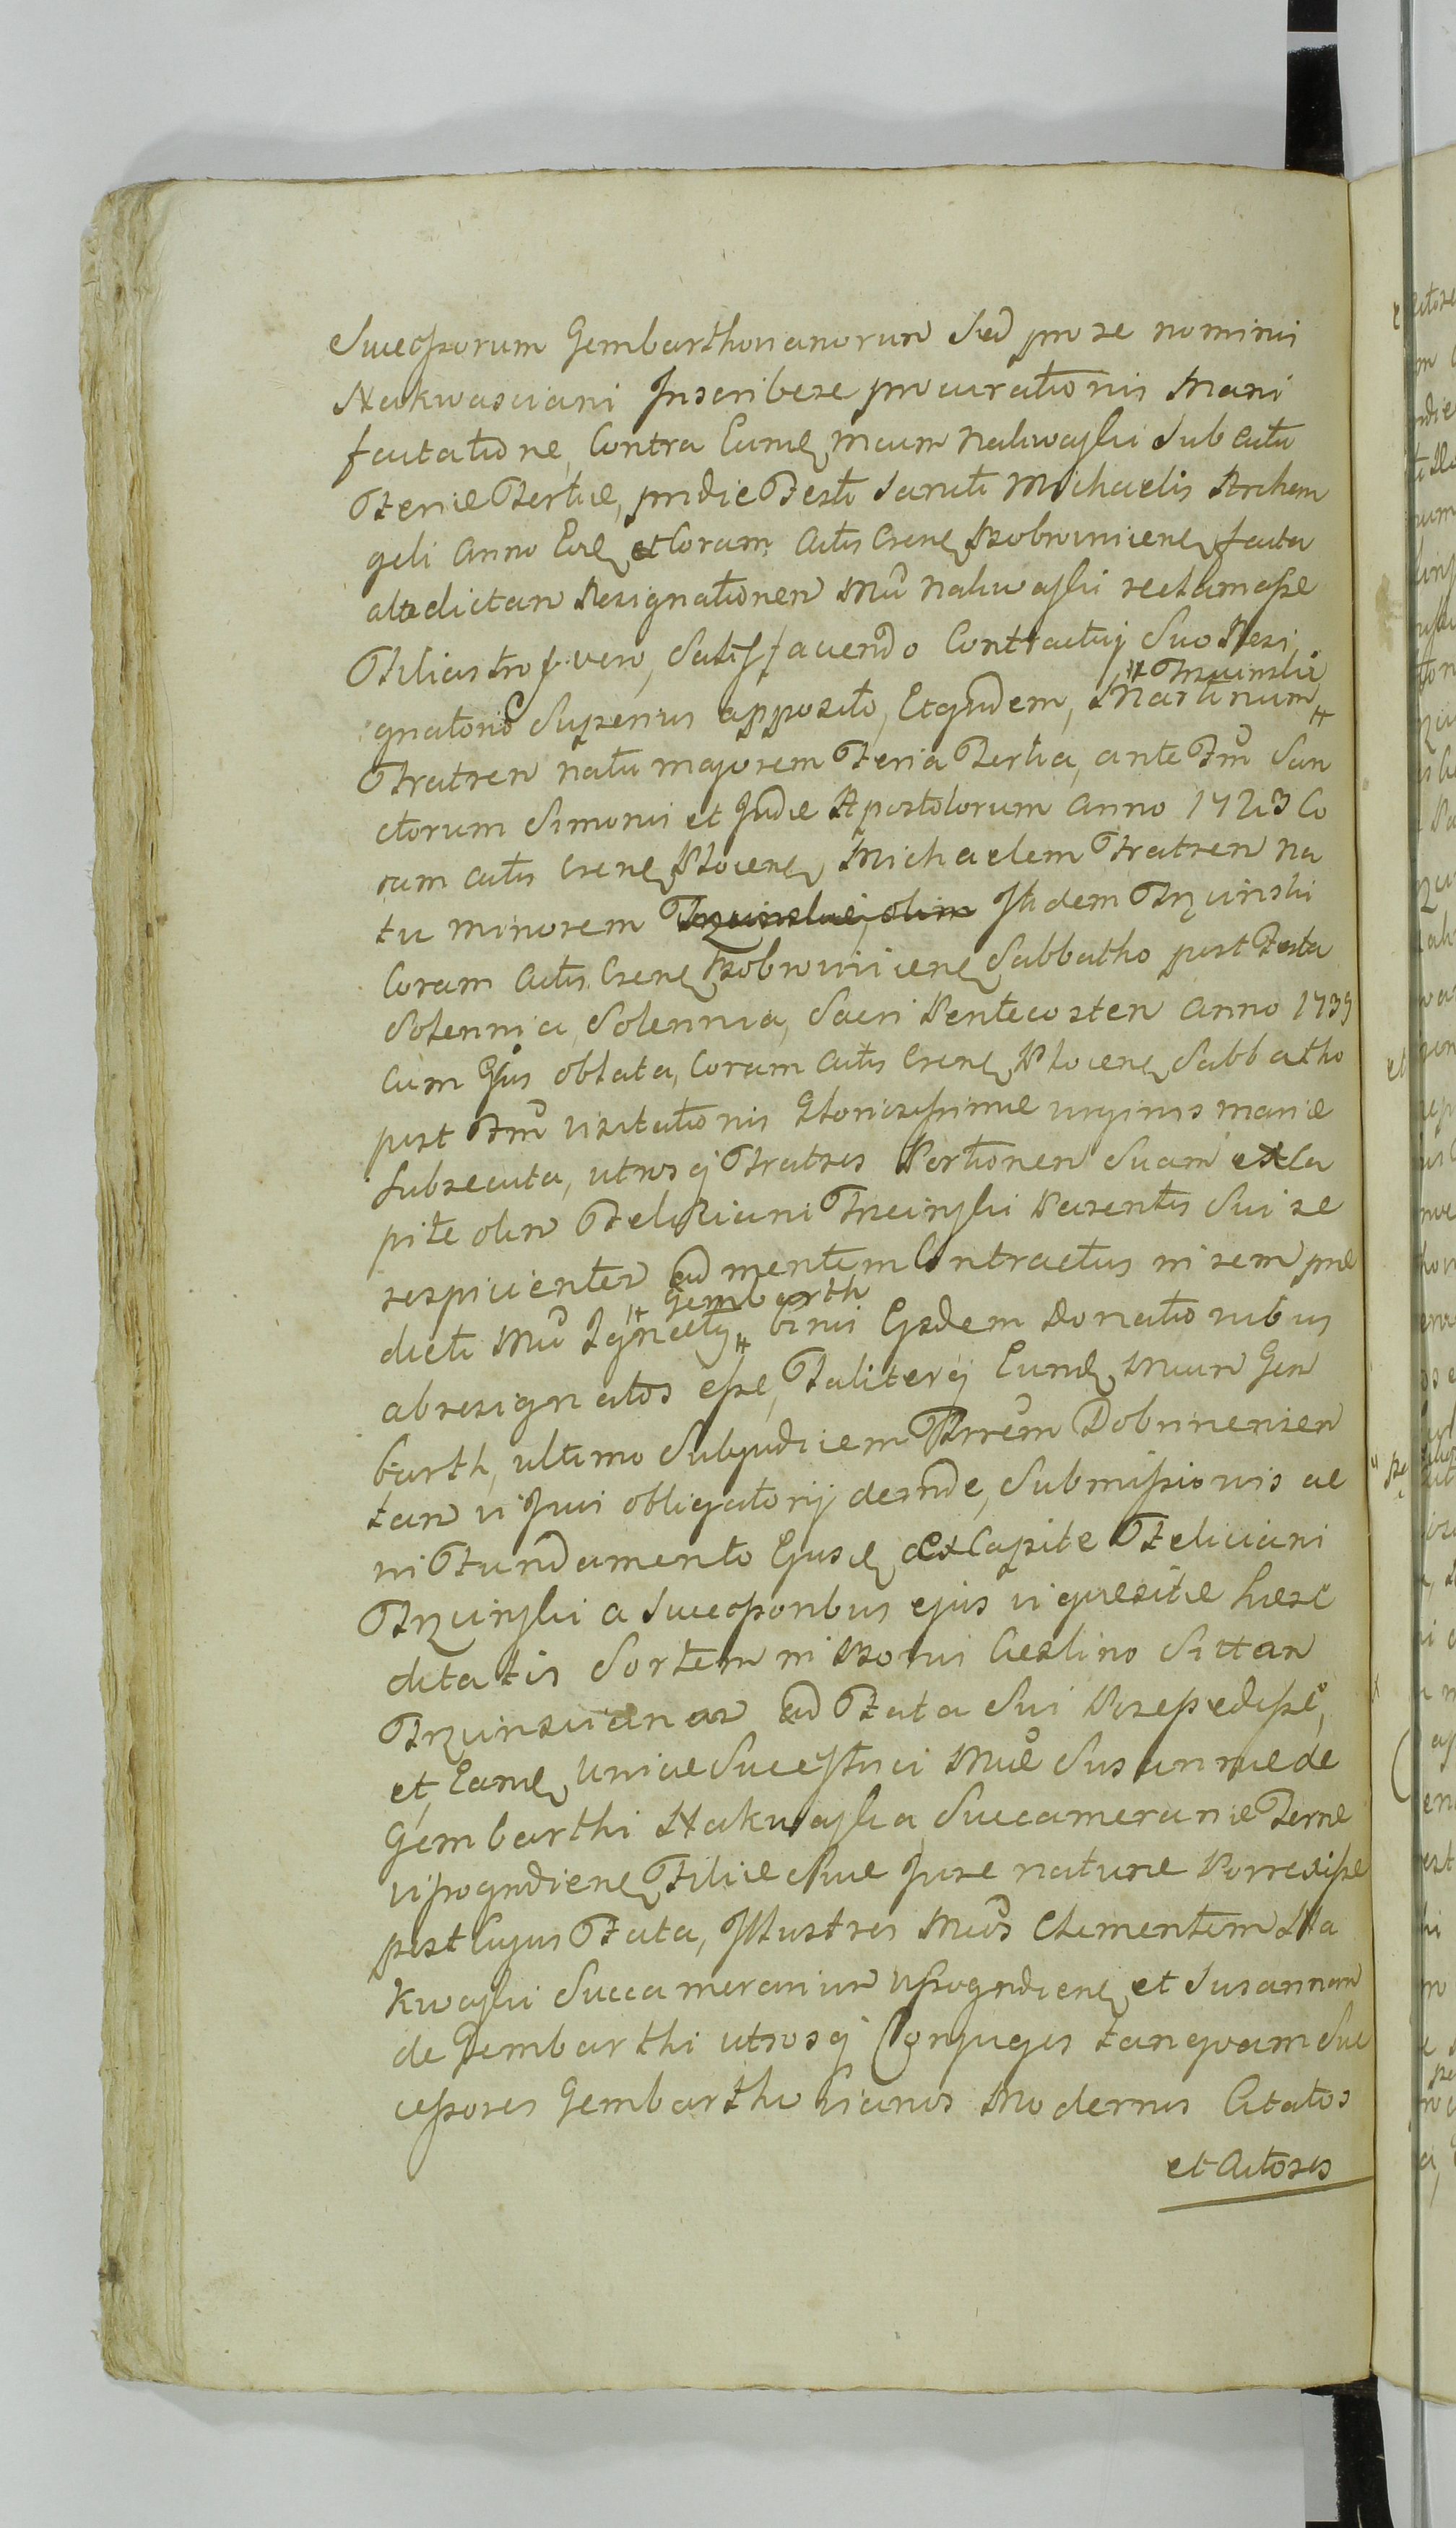 Successorum Gembarthovianorum Sed pro se nominis
Nakwasciani Inscribere procurationis Mani
factatione, Contra Eund. Mcum Nakwaski Sub actu
Feriæ Tertiæ, pridie Festi Sancti Michaelis Archan
geli Anno Eod. et Coram Actis Csren. Bobrovnicen. facta
altedictan Resignationen Mci Nakwaski reclamasse
Filiastros vero, Satisfaciendo Contractuj Suo Resi
gnatorio Superius apposito, Etquidem, Martinum
# Trzcinskie #
Fratren natu majorem Feria Tertia, ante Ftum San
ctorum Simonis et Judæ Apostolorum Anno 1723 Co
ram Actis Csren. Plocen. Michaelem Fratren na
tu minorem Trzcinskie, olim Itidem Trzcinski
Coram Actis Csren. Bobrovnicen. Sabbatho post Festa
Solennia, Solennia, Sacri Pentecosten Anno 1739
Cum Ejus oblata, Coram Actis Csren. Plocen. Sabbatho
post Ftum visitationis Gloriosissimæ virginis mariæ
Subsecuta, utrosq Fratres Portionen Suam ex Ca
pite olim Feliciani Trzcinski Parentis Sui se
respicienter ad mentem Contractus in rem præ
dicti Mci Ignatij # binis Ejsdem Donationibus
# Gembarth
abresignatos esse, Taliterq Eund. Mcum Gem
barth, ultimo Subjudicem Trrem Dobrinensen
tan vi Juris obligatorij deinde, Submissionis ac
in Fundamento Ejusd. ex Capite Feliciani
Trzcinski a Successoribus ejus vi quæsitæ hære
ditatis Sortem in Bonis Cieslino Sittan
Trzcinscianas ad Fata Sui Possedisse,
et Eand. Unicæ Successtrici Mcæ Susannæ de
Gembarthi Nakwaska Succamerariæ Terræ
vissogrdien. Filiæ Suæ Jure naturæ Porrexisse
post Cujus Fata, Illustres Mcos Clementem Na
Kwaski Succamerariun vissogrdien. et Susannan
de Gembarthi utrosq Conjuges tanquam Suc
cessores Gembarthovianos Modernos Citatos
et Actores